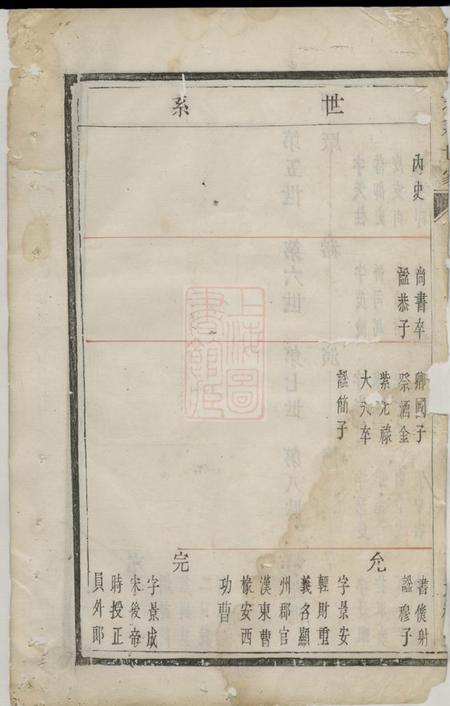 世系
內史
尚書卒
諡恭子
卿國子
祭酒金
紫光祿
大夫卒
諡簡子
書僕射
諡穆子
允
字景安
輕財重
義名顯
州郡官
漢東曹
椽安西
功曹
完
字景成
宋後帝
時授正
員外郎
上海圖書館藏